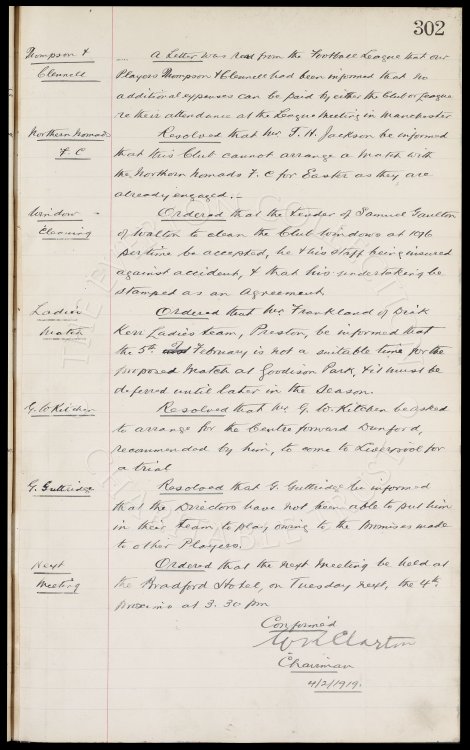 302
Thompson &
Clennell
A Letter was read from the Football League that our
Players Thompson & Clennell had been informed that no
additional expenses can be paid by either the Club or League
re their attendance at the League meeting in Manchester
Northern Nomads
F.C
Resolved that Mr. T. H. Jackson be informed
that this Club cannot arrange a match with
the Northern Nomads F.C for Easter as they are
already engaged.-
Window
Cleaning
Ordered that the tender of Samuel Gaulton
of Walton to clean the Club Windows at 10/6
per time be accepted, he & his staff being insured
against accident, & that his undertaking be
stamped as an Agreement
Ladies
Match
Ordered that Mr Frankland of Dick
Kerr Ladies team, Preston, be informed that
the 5th February is not a suitable time for the
proposed match at Goodison Park, & it must be
deferred until later in the Season.
G. W. Kitchen
Resolved that Mr G. W. Kitchen be asked
to arrange for the Centre forward Dunford,
recommended by him, to come to Liverpool for
a trial
G. Guttridge
Resolved that G. Guttridge be informed
that the Directors have not been able to put him
in their team to play owing to the promises made
to other Players.
Next
Meeting
Ordered that the next meeting be held at
the Bradford Hotel, on Tuesday next, the 4th
proximo at 3.30 pm
Confirmed
W R Clayton
Chairman
4/2/1919.